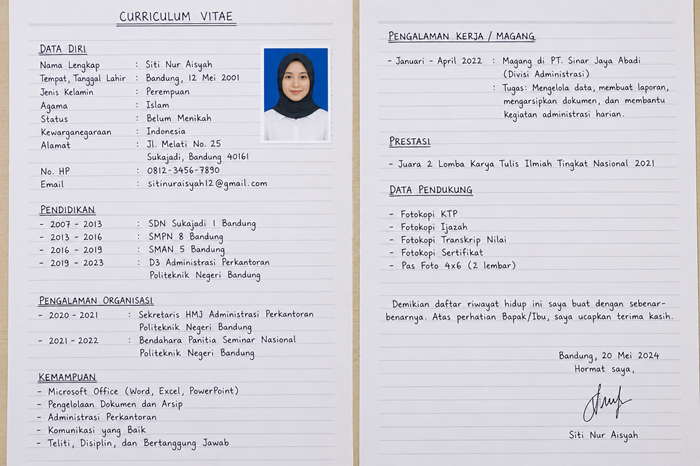 CURRICULUM VITAE
DATA DIRI
Nama Lengkap : Siti Nur Aisyah
Tempat, Tanggal Lahir : Bandung, 12 Mei 2001
Jenis Kelamin : Perempuan
Agama : Islam
Status : Belum Menikah
Kewarganegaraan : Indonesia
Alamat : Jl. Melati No. 25
Sukajadi, Bandung 40161
No. HP : 0812-3456-7890
Email : sitinuraisyah12@gmail.com
PENDIDIKAN
- 2007 - 2013 : SDN Sukajadi 1 Bandung
- 2013 - 2016 : SMPN 8 Bandung
- 2016 - 2019 : SMAN 5 Bandung
- 2019 - 2023 : D3 Administrasi Perkantoran
Politeknik Negeri Bandung
PENGALAMAN ORGANISASI
- 2020 - 2021 : Sekretaris HMJ Administrasi Perkantoran
Politeknik Negeri Bandung
- 2021 - 2022 : Bendahara Panitia Seminar Nasional
Politeknik Negeri Bandung
KEMAMPUAN
- Microsoft Office (Word, Excel, PowerPoint)
- Pengelolaan Dokumen dan Arsip
- Administrasi Perkantoran
- Komunikasi yang Baik
- Teliti, Disiplin, dan Bertanggung Jawab
PENGALAMAN KERJA / MAGANG
- Januari - April 2022 : Magang di PT. Sinar Jaya Abadi
(Divisi Administrasi)
: Tugas: Mengelola data, membuat laporan,
mengarsipkan dokumen, dan membantu
kegiatan administrasi harian.
PRESTASI
- Juara 2 Lomba Karya Tulis Ilmiah Tingkat Nasional 2021
DATA PENDUKUNG
- Fotokopi KTP
- Fotokopi Ijazah
- Fotokopi Transkrip Nilai
- Fotokopi Sertifikat
- Pas Foto 4x6 (2 lembar)
Demikian daftar riwayat hidup ini saya buat dengan sebenar-
benarnya. Atas perhatian Bapak/Ibu, saya ucapkan terima kasih.
Bandung, 20 Mei 2024
Hormat saya,
Siti Nur Aisyah